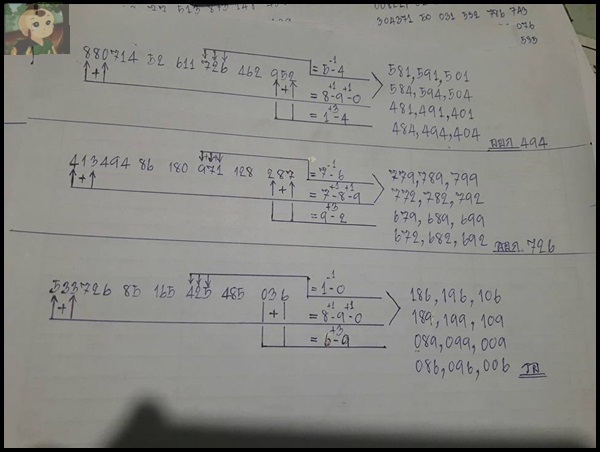 513 875
304371 50 031 332 796 743
076
333
880714 52 611 726 462 952
+ +
= 5-4
-1
= 8-9-0
+1 +1
= 1-4
+3
581, 591, 501
584, 594, 504
481, 491, 401
484, 494, 404
494
413494 86 180 971 128 287
+ +
= 7-6
-1
= 7-8-9
+1 +1
= 9-2
+3
779, 789, 799
772, 782, 792
679, 689, 699
672, 682, 692
726
533726 85 165 425 485 036
+ +
= 1-0
-1
= 8-9-0
+1 +1
= 6-9
+3
186, 196, 106
189, 199, 109
089, 099, 009
086, 096, 006